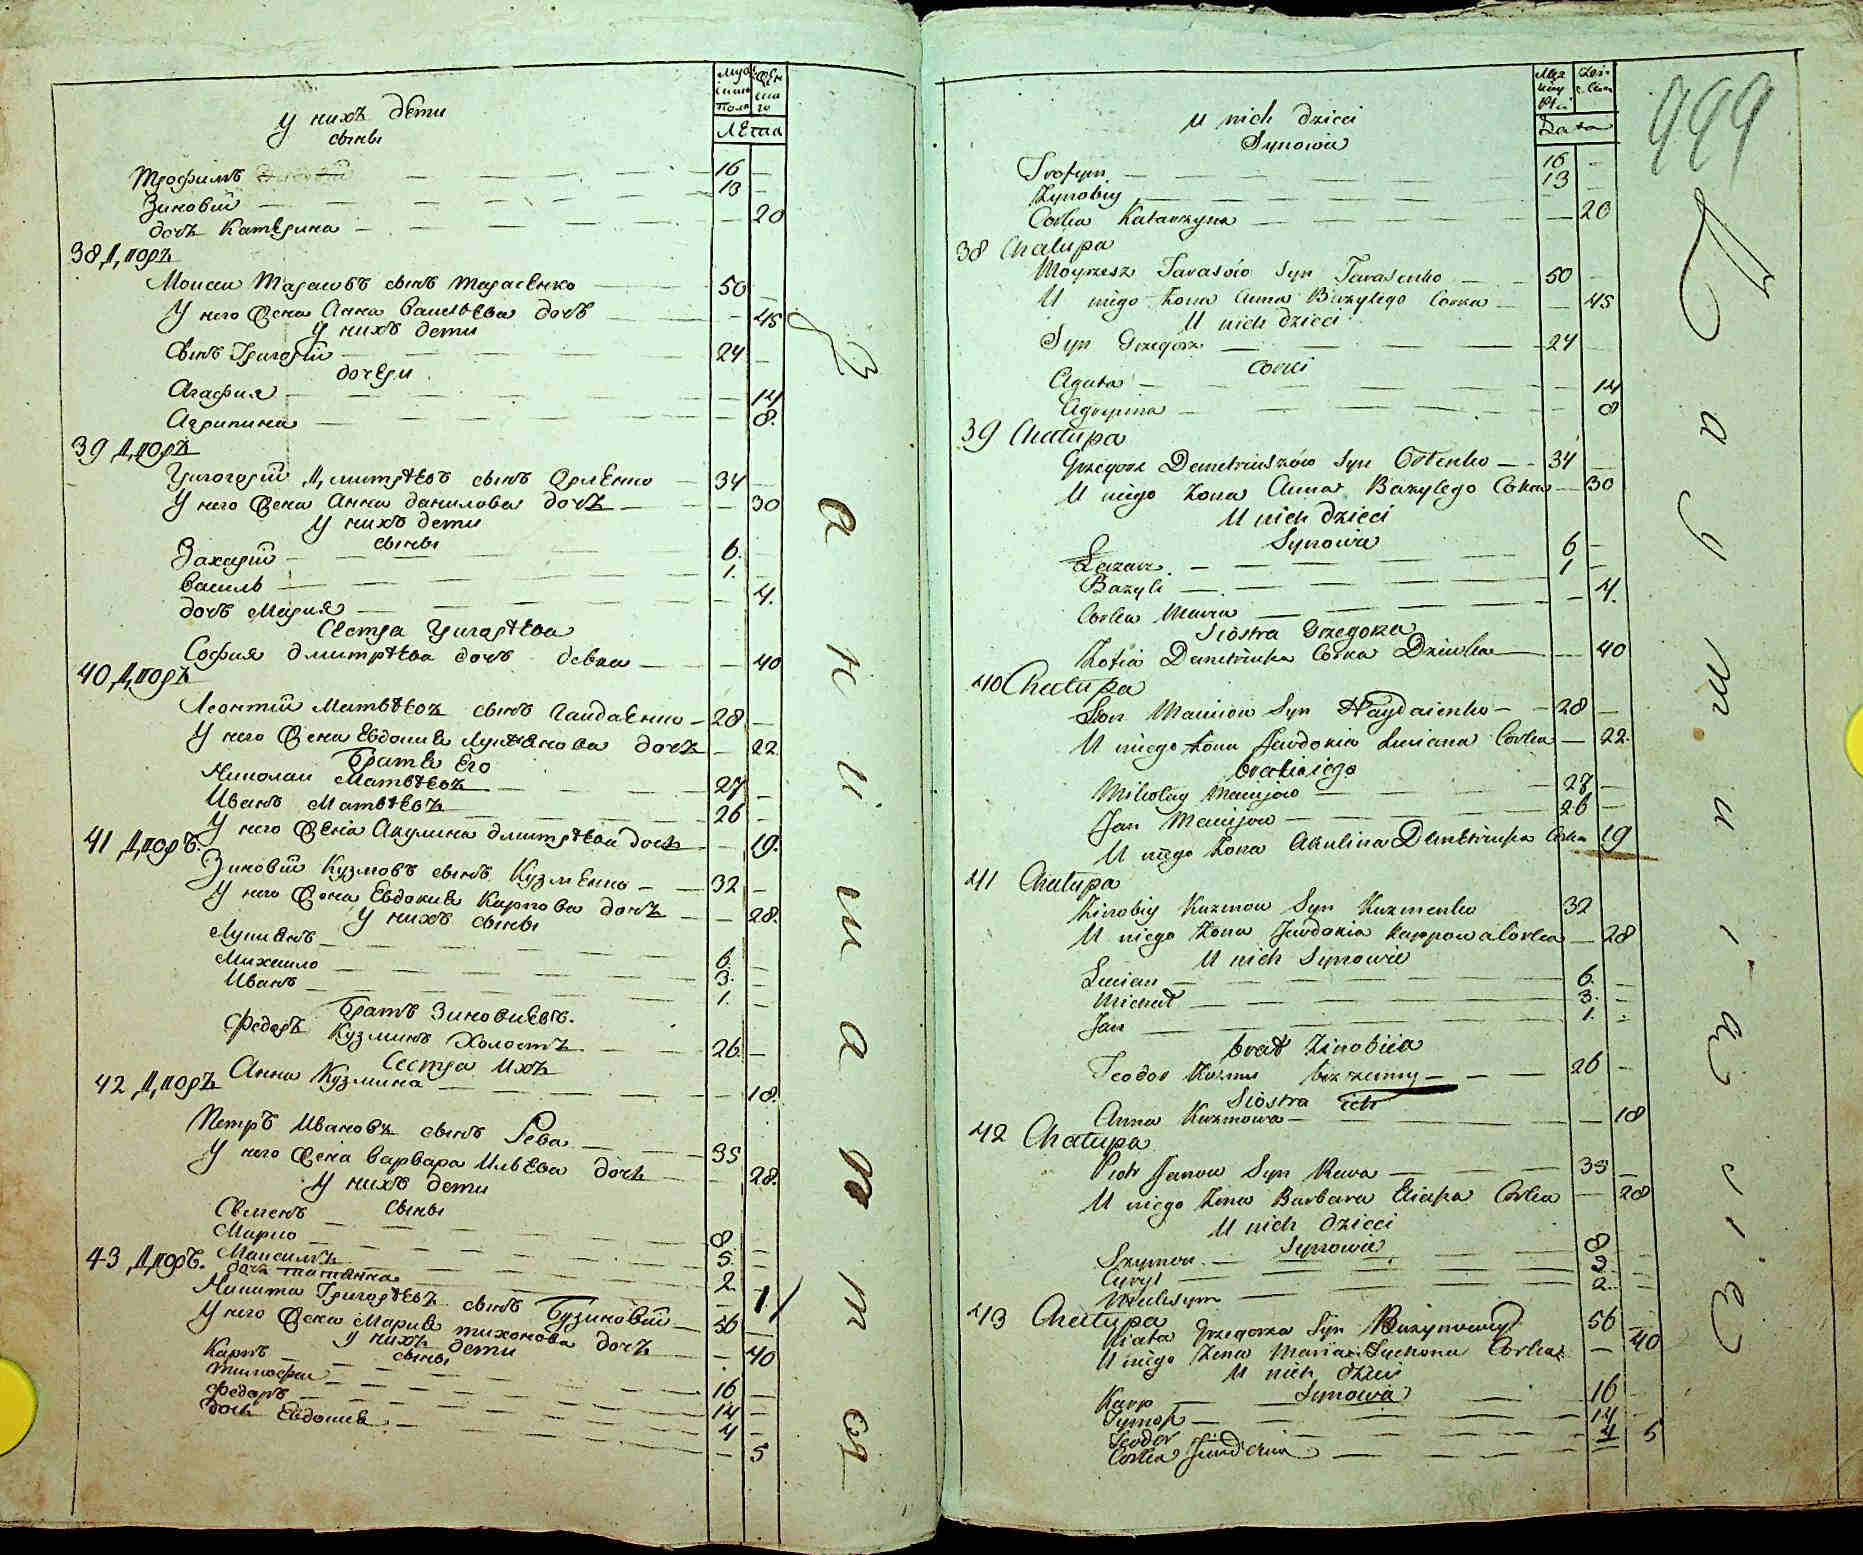 Муже
ска
Пола
Жен
ска
го
Лѣта
У нихъ дети
сыны
Трофимъ 16
Зиновий 13
дочь Катерина 20
38 Дворъ
Моисей Тарасовъ сынъ Тарасенко 50
У него жена Анна Васильева дочь 45
У нихъ дети
Сынъ Григорий 24
дочери
Агафия 14
Агрипина 8.
39 Дворъ
Григорий Дмитрѣевъ сынъ Орленко 34
У него жена Анна данилова дочь 30
У нихъ дети
сыны
Захарий 6.
Василь 1.
дочь Мария 4.
Сестра Григорѣева
София дмитрѣева дочь девка 40
40 Дворъ
Леонтий Матвѣевъ сынъ Гайдаенко 28
У него жена Евдокия Лукиянова дочь 22
Братя Его
Николай Матвѣевъ 27
Иванъ Матвѣевъ 26
У него жена Акулина дмитрѣева дочь 19.
41 Дворъ.
Зиновий Кузмовъ сынъ Кузменко 32
У него жена Евдокия Карпова дочь 28.
У нихъ сыны
Лукиянъ 6.
Михайло 3.
Иванъ 1.
Братъ Зиновиевъ.
Федоръ Кузминъ Холостъ 26
Сестра Ихъ
Анна Кузмина 18.
42 Дворъ
Петръ Ивановъ сынъ Рева 35
У него жена Варвара Ильева дочь 28.
У нихъ дети
сыны
Семенъ 8
Марко 5.
Максимъ 2
дочь татянна 1
43 Дворъ.
Никита Григорѣевъ сынъ Бузиновий 56
У него жена Мария тихонова дочь 40
У нихъ дети
сыны
Карпъ 16
Тимофей 14
Федоръ 4
дочь Евдокия 5
499
Męz
kiey
Płci
Lata
U nich dzieci
Synowie
Trofym 16
Zynobiy 13
Corka Katarzyna 20
38 Chałupa
Moyzesz Tarasów Syn Tarasenko 50
U niego Zona Anna Bazylego Corka 45
U nich dzieci
Syn Grzegorz 24
Corki
Agata 14
Agrypina 8
39 Chałupa
Grzegorz Demetriuszów Syn Orlenko 34
U niego Zona Anna Bazylego Corka 30
U nich Dzieci
Synowie
Lazarz 6
Bazyli 1
Corka Maria 4.
Siostra Grzegorza
Zofia Demetriuka Corka Dziewka 40
40 Chałupa
Leon Maciiow Syn Haydaienko 28
U niego Zona Jewdokia Luciana Corka 22.
bracia iego
Mikołay Maciiow 27
Jan Maciiow 26
U niego Zona Akulina Demetriuka Corka 19
41 Chałupa
Zinobiy Kuzmow Syn Kuzmenko 32
U niego Zona Jewdokia Karpowa Corka 28
U nich Synowie
Lucian 6.
Michał 3.
Jan 1.
brat Zinobiia
Teodor Kuzmy bezzenny 26
Siostra ich
Anna Kuzmowa 18
42 Chałupa
Piotr Janow Syn Rewa 35
U niego Zona Barbara Eliasza Corka 28
U nich dzieci
Synowie
Szymon 8
Cyryl 3
Maksym 2
43 Chałupa
Nikita Grzegorza Syn Buzynowy 56
U niego Zona Maria Tychona Corka 40
U nich dzieci
Synowie
Karp 16
Tymofi 14
Teodor 4
Corka Jewdokia 5